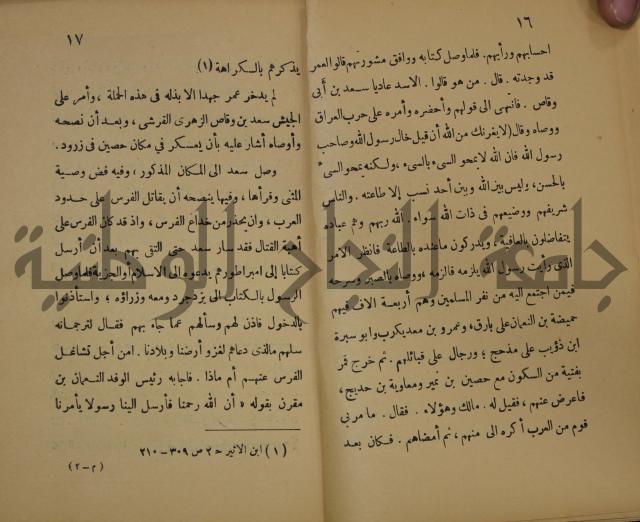 ١٦
احسابهم ورأيهم. فلما وصل كتابه ووافق مشورتهم قالوا لعمر
قد وجدته. قال. من هو قالوا. الاسد عاديا سعد بن أبى
وقاص. فانتهى الى قولهم وأحضره وأمره على حرب العراق
ووصاه وقال (لا يغرنك من الله أن قيل خال رسول الله وصاحب
رسول الله فان الله لا يمحو السىء بالسىء، ولكنه يمحو السىء
بالحسن، وليس بين الله وبين أحد نسب إلا طاعته. والناس
شريفهم ووضيعهم فى ذات الله سواء. الله ربهم وهم عباده
يتفاضلون بالعافية، ويدركون ما عنده بالطاعة فانظر الامر
الذى رأيت رسول الله يلزمه فالزمه، ووصاه بالصبر وسرحه
فيمن اجتمع اليه من نفر المسلمين وهم أربعة الاف فيهم
حميضة بن النعمان على بارق، وعمرو بن معد يكرب وابو سبرة
ابن ذؤيب على مذحج؛ ورجال على قبائلهم. ثم خرج فمر
بفتية من السكون مع حصين بن نمير ومعاوية بن حديج،
فاعرض عنهم، فقيل له. مالك وهؤلاء. فقال. ما مر بى
قوم من العرب أكره الى منهم، ثم أمضاهم. فكان بعد
١٧
يذكرهم بالكراهة (١).
لم يدخر عمر جهدا الا بذله فى هذه الحملة، وأمر على
الجيش سعد بن وقاص الزهرى القرشى، وبعد أن نصحه
وأوصاه أشار عليه بأن يعسكر في مكان حصين فى زرود.
وصل سعد الى المكان المذكور، وفيه فض وصية
المثنى وقرأها، وفيها ينصحه أن يقاتل الفرس على حدود
العرب، وان يحذر من خداع الفرس، واذ قد كان الفرس على
أهبة القتال فقد سار سعد حتى التقى بهم بعد أن أرسل
كتابا إلى امبراطورهم يدعوه الى الاسلام أو الجزية فلما وصل
الرسول بالكتاب الى يزدجرد ومعه وزراؤه؛ واستأذنوا
بالدخول فاذن لهم وسألهم عما جاء بهم فقال لترجمانه
سلهم ما الذى دعاهم لغزو أرضنا وبلادنا. امن أجل تشاغل
الفرس عنهم أم ماذا. فاجابه رئيس الوفد النعمان بن
مقرن بقوله « أن الله رحمنا فأرسل الينا رسولا يأمرنا
(١) ابن الاثير ج ٢ ص ٣٠٩ — ٣١٠
(م — ٢)
جامعة النجاح الوطنية